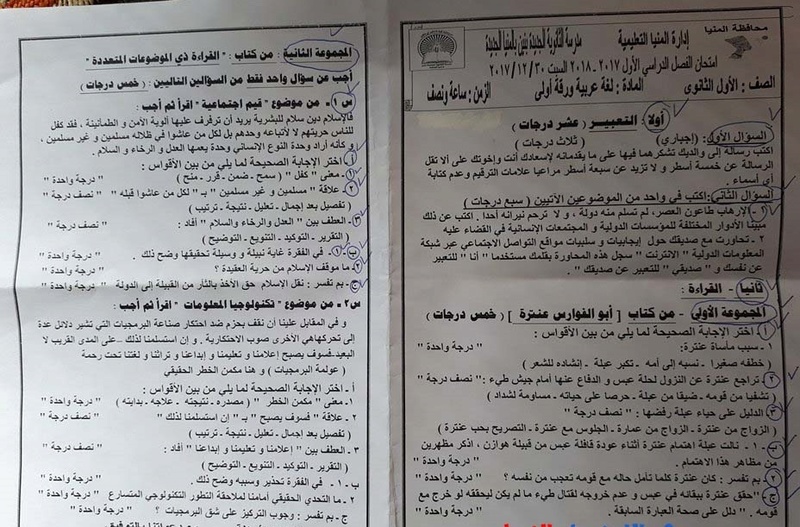 محافظة المنيا
إدارة المنيا التعليمية
مدرسة الثانوية الجديدة بنين بالمنيا الجديدة
امتحان الفصل الدراسي الأول ٢٠١٧ - ٢٠١٨ السبت ٣٠ / ١٢ / ٢٠١٧
الصف : الأول الثانوى المادة : لغة عربية ورقة أولى الزمن : ساعة ونصف
أولاً : التعبير ( عشر درجات )
السؤال الأول: (إجباري) ( ثلاث درجات )
اكتب رسالة إلى والديك تشكرهما فيها على ما يقدمانه لإسعادك أنت وإخوتك على ألا تقل
الرسالة عن خمسة أسطر و لا تزيد عن سبعة أسطر مراعيا علامات الترقيم وعدم كتابة
أى أسماء .
السؤال الثاني: اكتب في واحد من الموضوعين الآتيين ( سبع درجات )
١ - الإرهاب طاعون العصر، لم تسلم منه دولة ، و لا ترحم نيرانه أحدا . اكتب عن ذلك
مبينا الأدوار المختلفة للمؤسسات الدولية و المجتمعات الإنسانية في القضاء عليه
٢ - تحاورت مع صديقك حول إيجابيات و سلبيات مواقع التواصل الاجتماعي عبر شبكة
المعلومات الدولية " الانترنت " سجل هذه المحاورة بقلمك مستخدما " أنا " للتعبير
عن نفسك و " صديقي " للتعبير عن صديقك " .
ثانيا - القراءة :
المجموعة الأولى - من كتاب [ أبو الفوارس عنترة ] ( خمس درجات )
أ ) اختر الإجابة الصحيحة لما يلي من بين الأقواس :
١ - سبب مأساة عنترة: " درجة واحدة "
( خطفه صغيرا . نسبه إلى أمه . تكبر عبلة . إنشاده للشعر )
٢ - تراجع عنترة عن النزول لحلة عبس و الدفاع عنها أمام جيش طيء :" نصف درجة "
( تشفيا من قومه . ضيقا من عبلة . حرصا على حياته . مساومة لشداد )
٣ - الدليل على حياء عبلة رفضها : " نصف درجة "
( الزواج من عنترة - الزواج من عمارة - الجلوس مع عنترة . التصريح بحب عنترة )
ب - ١ - نالت عبلة اهتمام عنترة أثناء عودة قافلة عبس من قبيلة هوازن ، اذكر مظهرين
من مظاهر هذا الاهتمام . " درجة واحدة "
٢ - بم تفسر : كان عنترة كلما تأمل حاله مع قومه تعجب من نفسه ؟ " درجة واحدة "
ج - "حقق عنترة ببقائه في عبس و عدم خروجه لقتال طيء ما لم يكن ليحققه لو خرج مع
قومه . " دلل على صحة العبارة السابقة . " درجة واحدة "
المجموعة الثانية : من كتاب : " القراءة ذي الموضوعات المتعددة "
أجب عن سؤال واحد فقط من السؤالين التاليين : ( خمس درجات )
س ١ - من موضوع " قيم اجتماعية " اقرأ ثم أجب :
فالإسلام دين سلام للبشرية يريد أن ترفرف عليها ألوية الأمن و الطمأنينة ، فقد كفل
للناس حريتهم لا لأتباعه وحدهم بل لكل من عاشوا في ظلاله مسلمين و غير مسلمين ،
و كأنه أراد وحدة النوع الإنساني وحدة يعمها العدل و الرخاء و السلام .
أ ) اختر الإجابة الصحيحة لما يلي من بين الأقواس :
١ - معنى " كفل " ( سمح - ضمن - قرر - منح ) " درجة واحدة "
٢ - علاقة " مسلمين و غير مسلمين " بـ " لكل من عاشوا قبله " " نصف درجة "
( تفصيل بعد إجمال - تعليل - نتيجة - ترتيب )
٣ - العطف بين " العدل والرخاء و السلام " أفاد: " نصف درجة "
( التقرير - التوكيد - التنويع - التوضيح )
ب - ١ - في الفقرة غاية نبيلة و وسيلة تحقيقها وضح ذلك . " درجة واحدة "
٢ - ما موقف الإسلام من حرية العقيدة ؟ " درجة واحدة "
ج - بم تفسر : نقل الإسلام حق الأخذ بالثأر من القبيلة إلى الدولة " درجة واحدة "
س٢ - من موضوع " تكنولوجيا المعلومات " اقرأ ثم أجب :
و في المقابل علينا أن نقف بحزم ضد احتكار صناعة البرمجيات التي تشير دلائل عدة
إلى تحركهاهي الأخرى صوب الاحتكارية . و إن استسلمنا لذلك – على المدى القريب لا
البعيد-فسوف يصبح إعلامنا و تعليمنا و إبداعنا و تراثنا و لغتنا تحت رحمة
( عولمة البرمجيات ) و هنا مكمن الخطر الحقيقي
أ - اختر الإجابة الصحيحة لما يلي من بين الأقواس :
١ - معنى " مكمن الخطر " ( مصدره - نتيجته - علاجه - بدايته ) " درجة واحدة "
٢ - علاقة " فسوف يصبح " بـ " إن استسلمنا لذلك " " نصف درجة "
( تفصيل بعد إجمال - تعليل - نتيجة - ترتيب )
٣ - العطف بين " إعلامنا و تعليمنا و إبداعنا " أفاد : " نصف درجة "
( التقرير - التوكيد - التنويع - التوضيح )
ب - ١ - في الفقرة تحذير وسببه وضح ذلك . " درجة واحدة "
٢ - ما التحدي الحقيقي أمامنا لملاحقة التطور التكنولوجي المتسارع " درجة واحدة "
ج - بم تفسر : وجوب التركيز على شق البرمجيات ؟ " درجة واحدة "